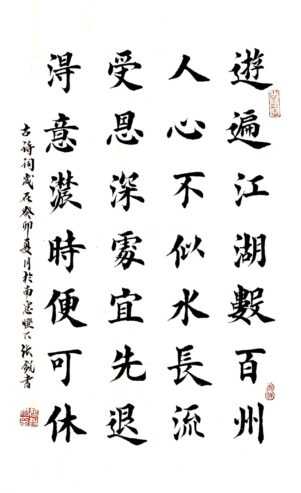 遊遍江湖數百州
人心不似水長流
受恩深處宜先退
淂意濃時便可休
古詩詞歲在癸卯夏月於南窓燈下張銳書